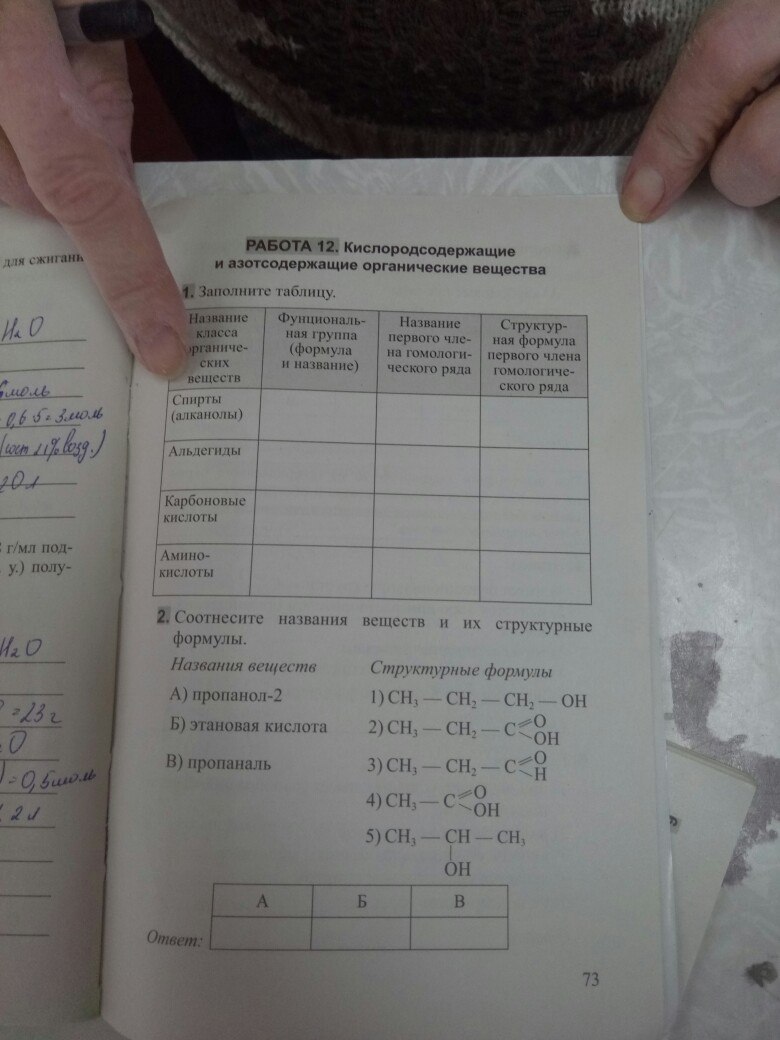 для сжигани
H₂O
моль
0,6·5=3моль
H₂O
г/мл под-
у.) полу-
H₂O
=23г
=0,5моль
2л
РАБОТА 12. Кислородсодержащие
и азотсодержащие органические вещества
1. Заполните таблицу.
Название
класса
органиче-
ских
веществ
Фунциональ-
ная группа
(формула
и название)
Название
первого чле-
на гомологи-
ческого ряда
Структур-
ная формула
первого члена
гомологиче-
ского ряда
Спирты
(алканолы)
Альдегиды
Карбоновые
кислоты
Амино-
кислоты
2. Соотнесите названия веществ и их структурные
формулы.
Названия веществ
Структурные формулы
А) пропанол-2
1) CH₃ — CH₂ — CH₂ — OH
Б) этановая кислота
2) CH₃ — CH₂ — C
O
OH
В) пропаналь
3) CH₃ — CH₂ — C
O
H
4) CH₃ — C
O
OH
5) CH₃ — CH — CH₃
OH
А Б В
Ответ:
73